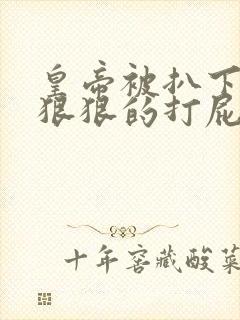 皇帝被扒下
狠狠的打屁
十年窖藏酸菜